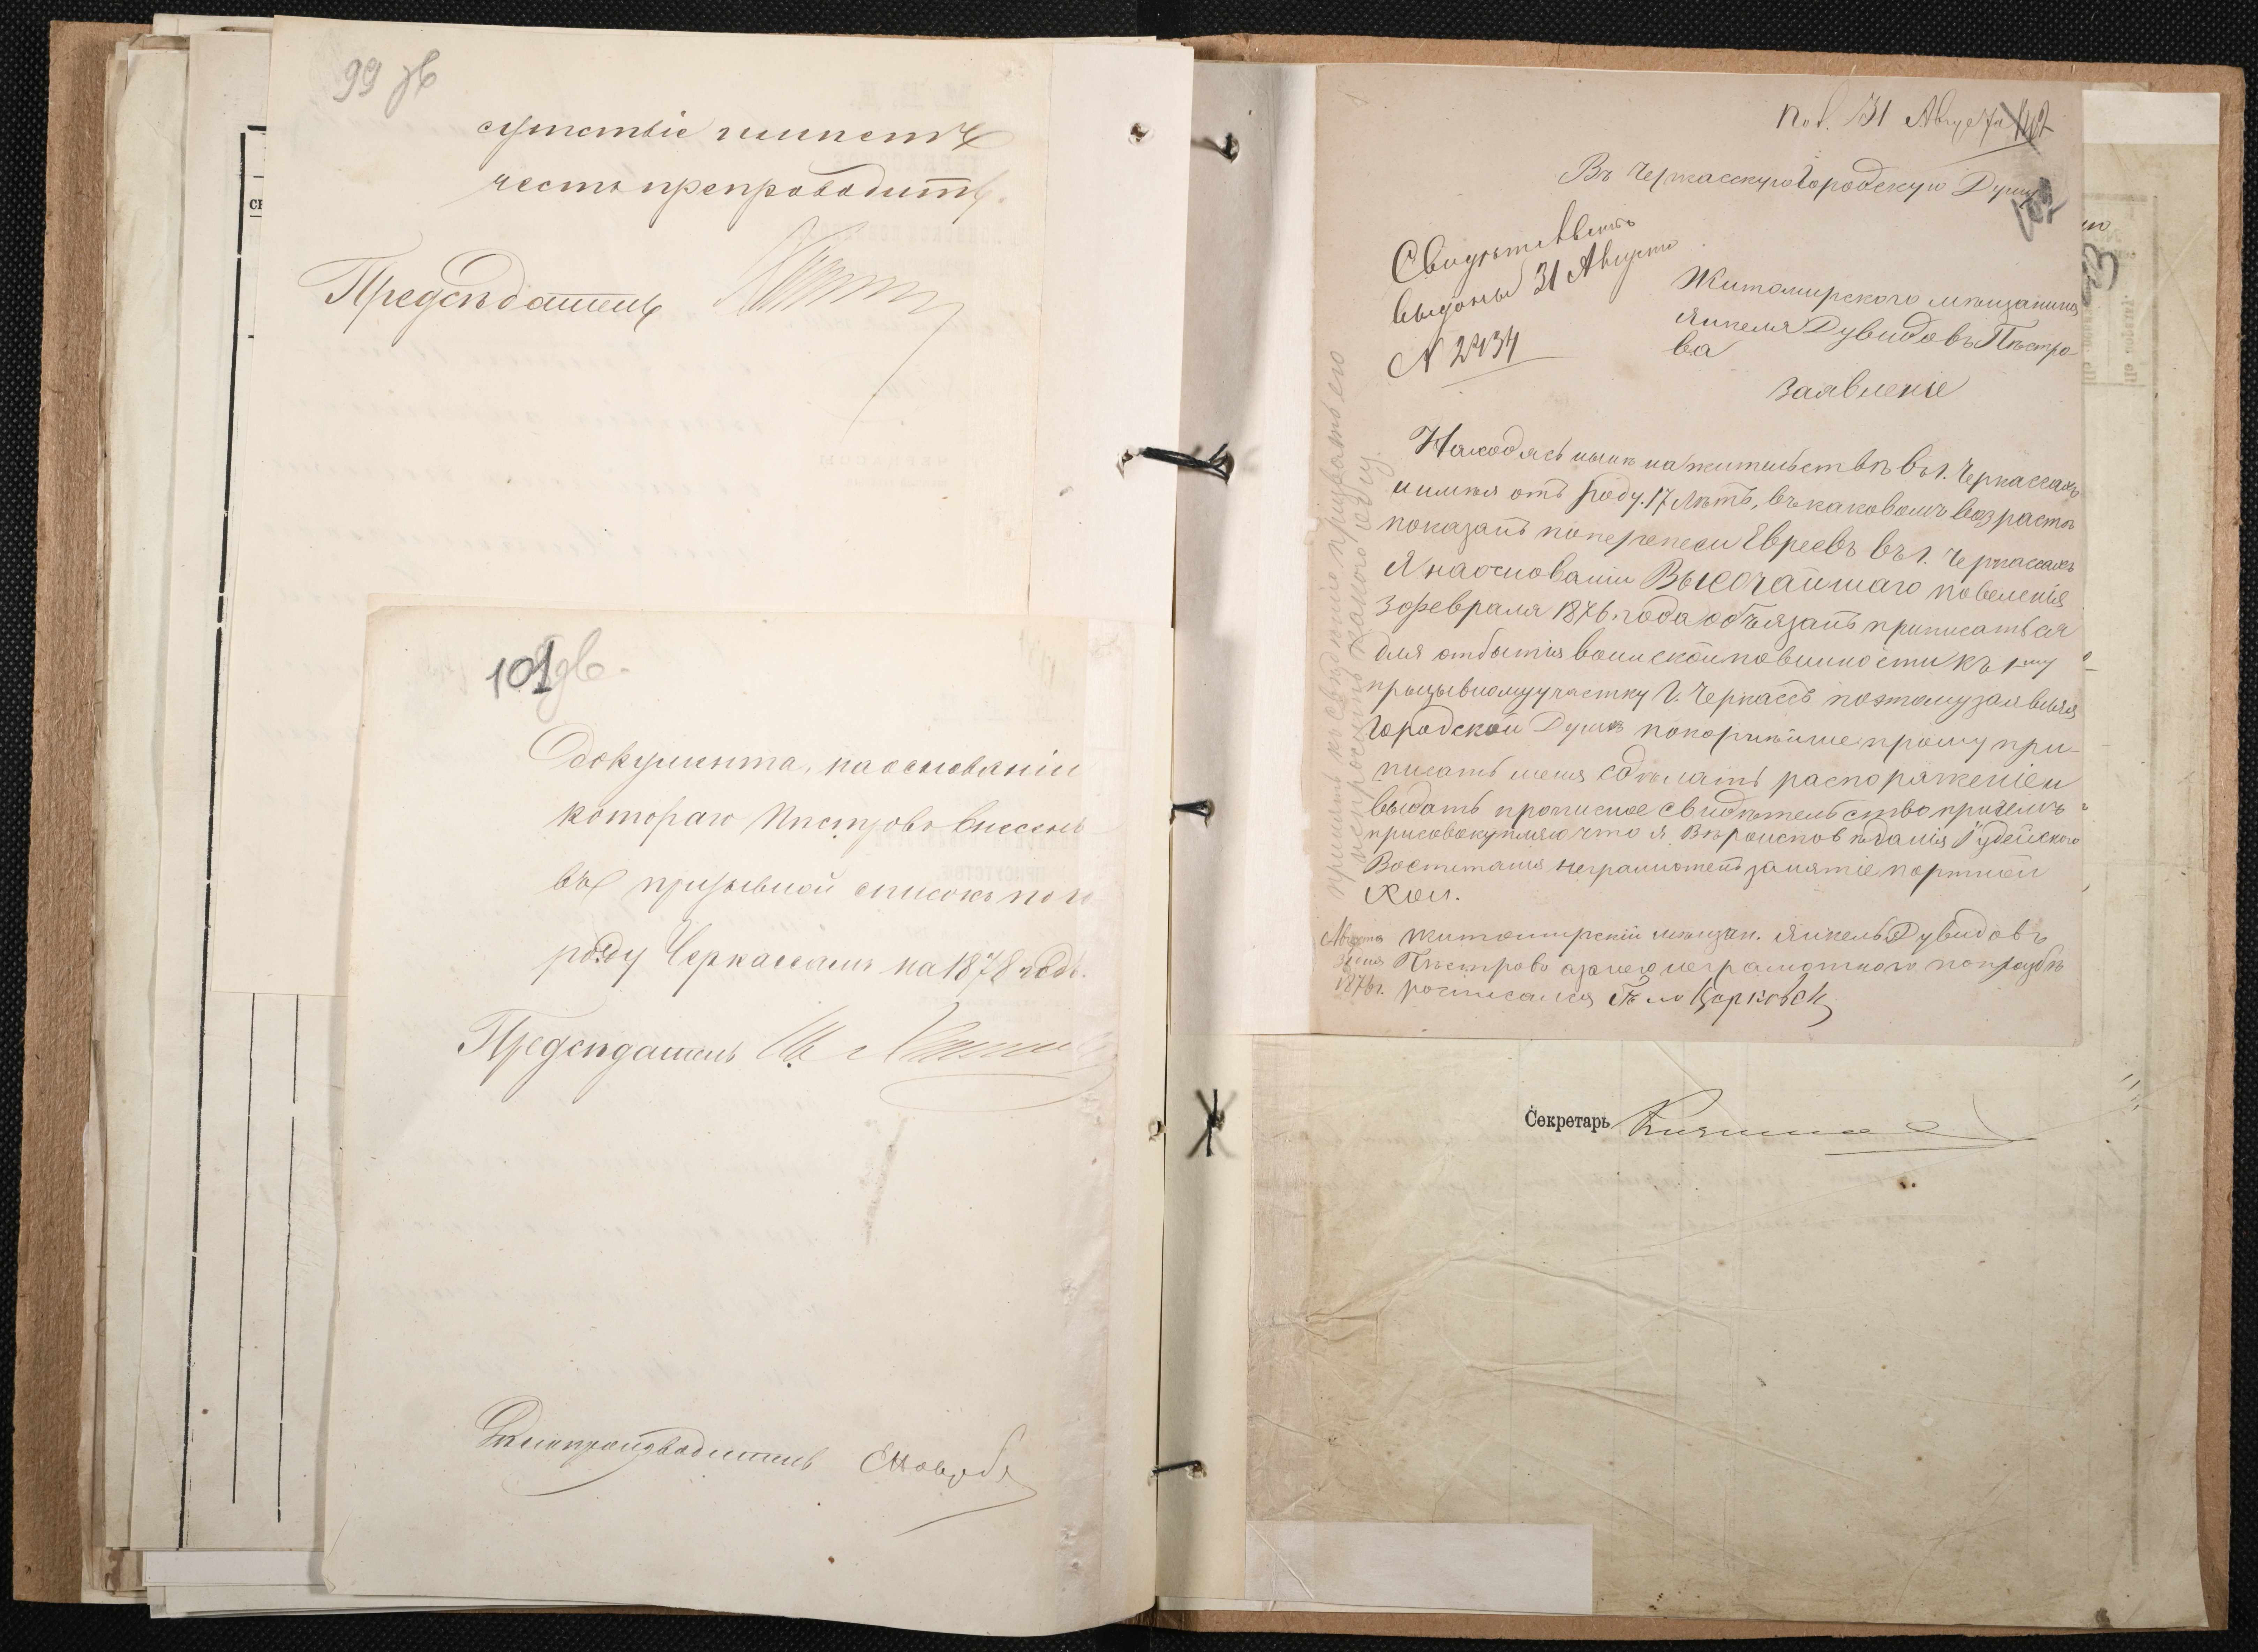 99 зв
сутствіе имѣетъ
честь препроводить.
Предсѣдатель
101 зв.
документа, на основаніи
котораго Пистровъ внесенъ
въ призывной списокъ по го
роду Черкассамъ на 1878 годъ.
Предсѣдатель
Дѣлопроизводитель
Пол. 31 Августа
102
Въ Черкасскую Городскую Думу
Свидѣтельство
выдано 31 Августа
№ 2434
Житомирского мѣщанина
Янкеля Дувидовъ Пѣстро-
ва
Заявленіе
Находясь нынѣ на жительствѣ въ г. Черкассахъ
и имѣя отъ роду 17 лѣтъ, въ каковомъ возрастѣ
показанъ по переписи Евреевъ въ г. Черкассахъ
Я на основаніи Высочайшаго повеленія
3 февраля 1876 года обязанъ приписаться
для отбытія воинской повинности къ 1му
прызывному участку г. Черкассъ поэтому заявляя
Городской Думѣ покорнѣйше прошу при-
писать меня сдѣлать распоряженіе и
выдать приписное свидѣтельство причемъ
присовокупляю что я Вѣроисповѣданія Іудейского
Воспитанія неграмотенъ занятіе портной
Хол.
Августа
31 дня
1876 г.
житомирскій мѣщан. Янкель Дувидовъ
Пѣстровъ а за него неграмотного по прозбѣ
росписался
принять къ свѣдѣнію призвать его
Секретарь